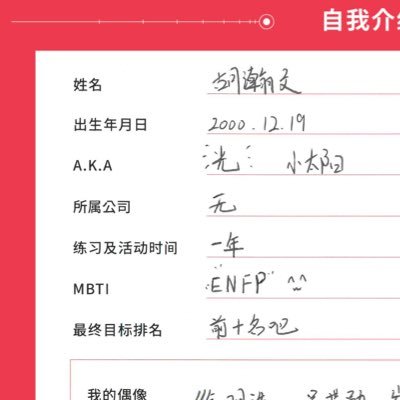 自我介
姓名 胡瀚文
出生年月日 2000.12.19
A.K.A 光 小太阳
所属公司 无
练习及活动时间 一年
MBTI ENFP ^^
最终目标排名 前十名吧
我的偶像